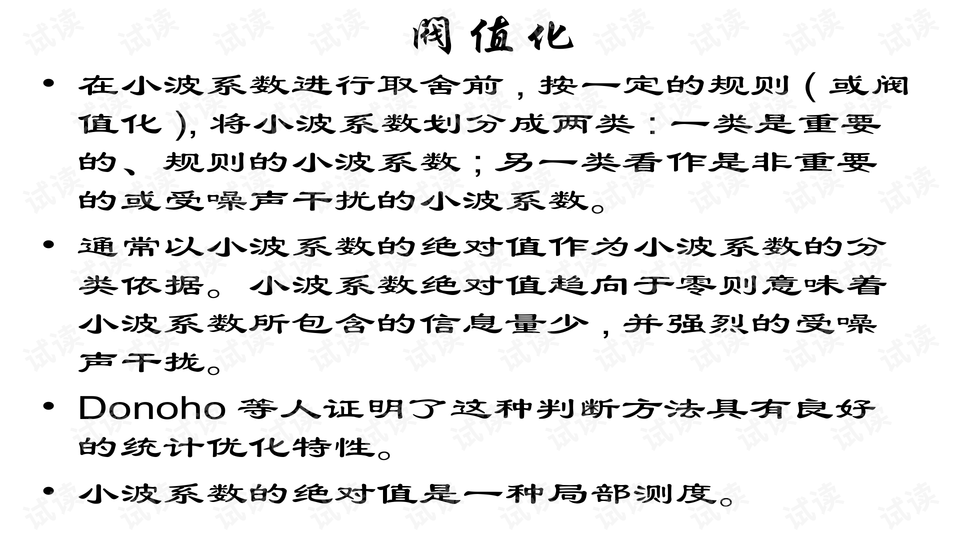 阀值化
• 在小波系数进行取舍前,按一定的规则(或阀
值化),将小波系数划分成两类:一类是重要
的、规则的小波系数;另一类看作是非重要
的或受噪声干扰的小波系数。
• 通常以小波系数的绝对值作为小波系数的分
类依据。小波系数绝对值趋向于零则意味着
小波系数所包含的信息量少,并强烈的受噪
声干拢。
• Donoho 等人证明了这种判断方法具有良好
的统计优化特性。
• 小波系数的绝对值是一种局部测度。